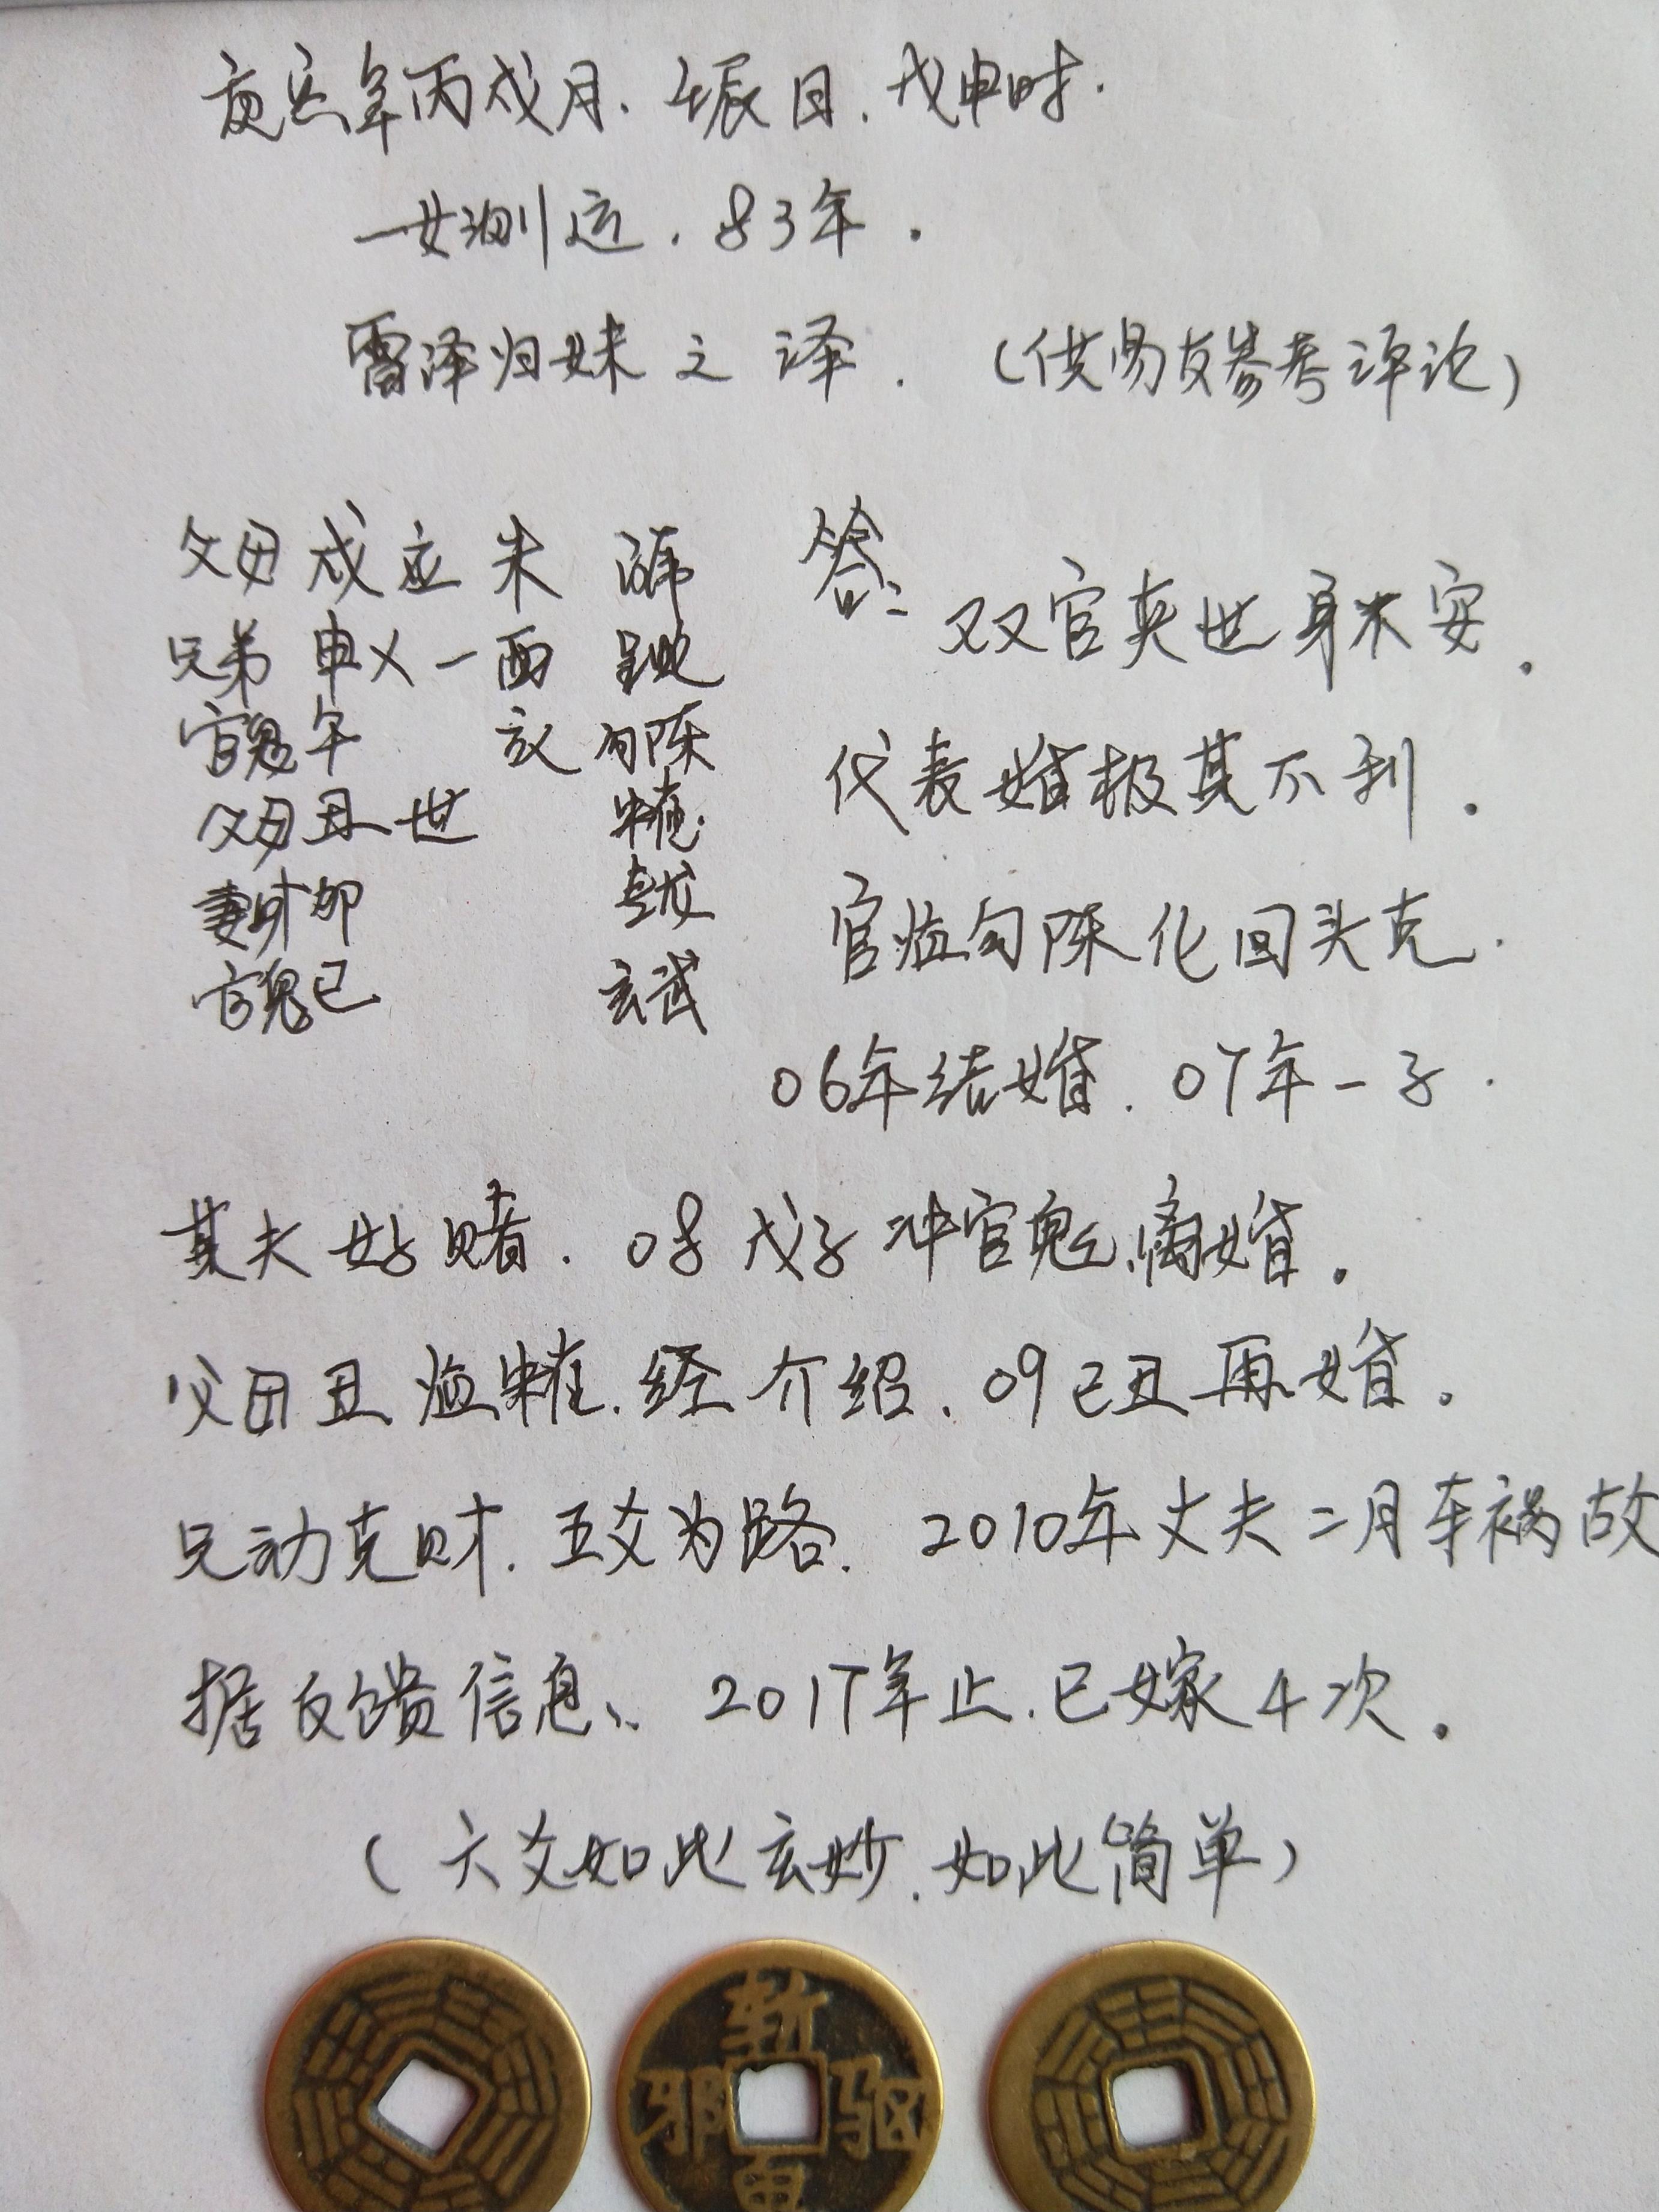 庚寅年丙戌月.壬辰日.戊申时.
一女测运.83年.
雷泽归妹之泽.(供易友参考评论)
答:
父母戌应 未 腾
兄弟 申乂一酉 虎
双官夹世身不安.
官鬼午 亥 勾陈
代表婚极其不利.
父母丑一世 朱雀
妻财卯 青龙
官临勾陈化回头克.
官鬼巳 玄武
06年结婚.07年一子.
其夫好赌.08戊子冲官鬼.离婚.
父母丑临朱雀.经介绍.09己丑再婚.
兄动克财.五爻为路.2010年丈夫二月车祸故
据反馈信息、2017年止.已嫁4次.
(六爻如此玄妙.如此简单)
斩
邪 驱